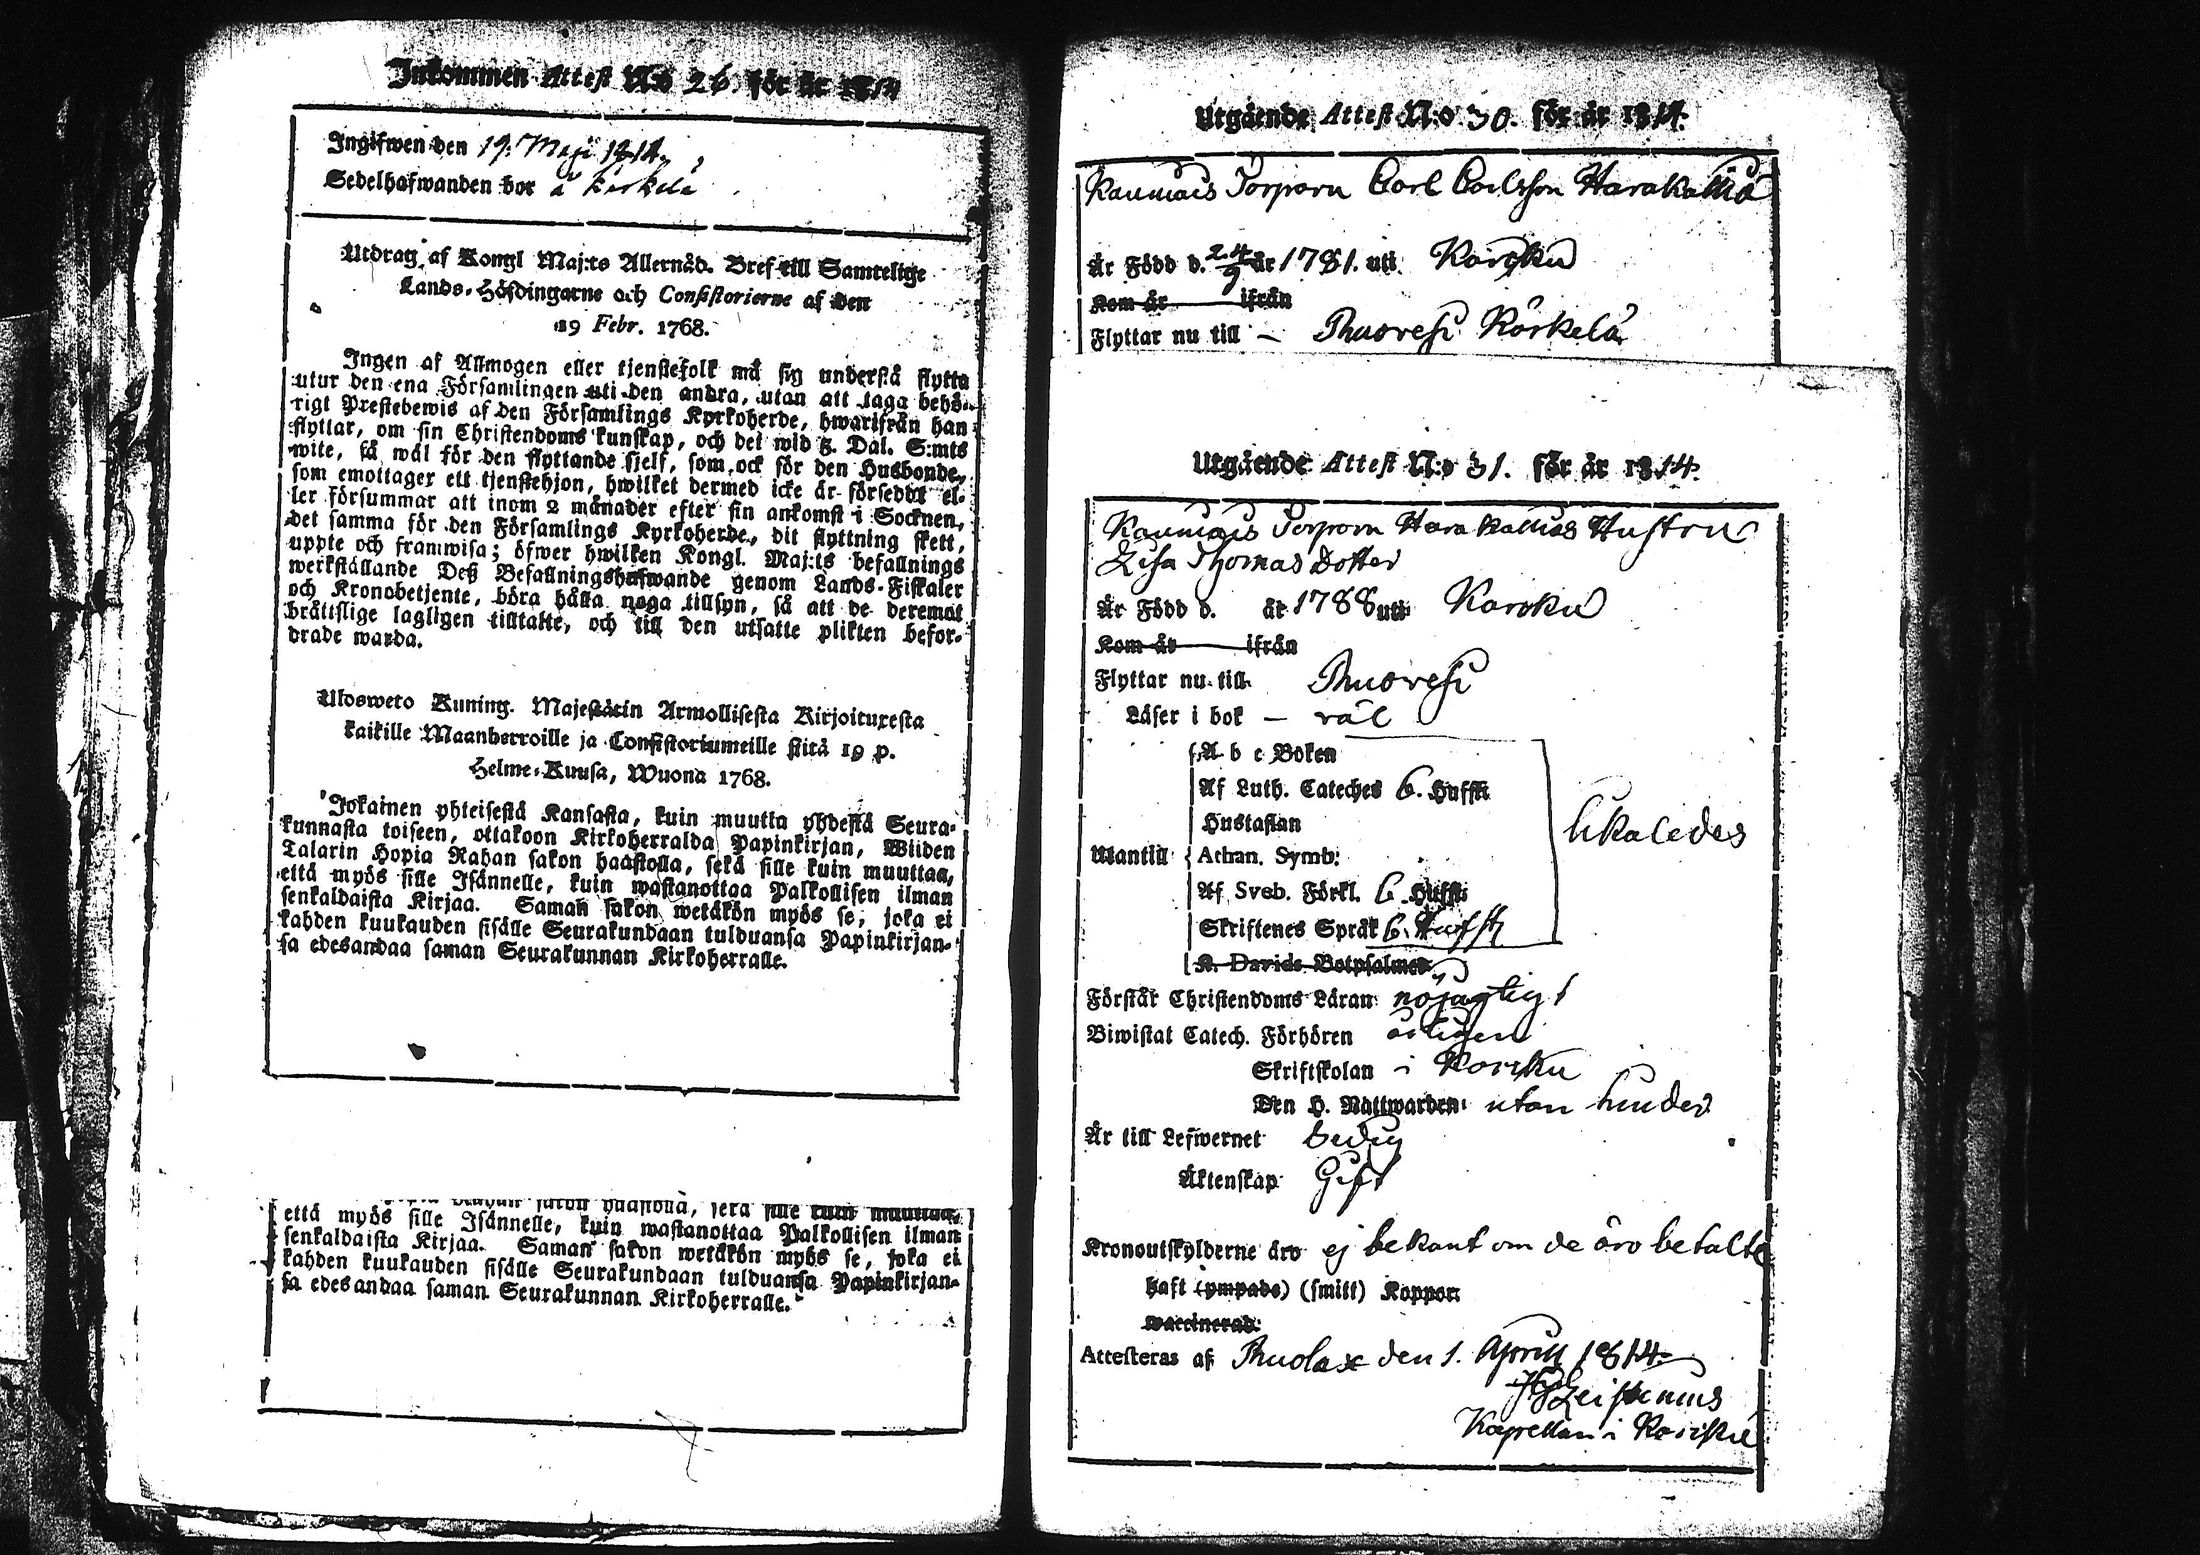 Inkommen Attest N:o 26. för år 1814
Ingifwen den 19. Maji 1814,
Sedelhafwanden bor å Kärkelä
Utdrag af Kongl Maj:ts Allernåd. Bref till Samtelige
Lands-Höfdingarne och Consistorierne af den
19 Febr. 1768.
Ingen af Allmogen eller tjenstefolk må sig understå flytta
utur den ena Församlingen uti den andra, utan att taga behö-
rigt Prestebewis af den Församlings Kyrkoherde, hwarifrån han
flyttar, om sin Christendoms kunskap, och det wid 5. Dal. S:mts
wite, så wäl för den flyttande sjelf, som ock för den Husbonde,
som emottager ett tjenstehjon, hwilket dermed icke är förseddt el-
ler försummar att inom 2 månader efter sin ankomst i Socknen,
det samma för den Församlings Kyrkoherde, dit flyttning skett,
uppte och framwisa; öfwer hwilken Kongl. Maj:ts befallnings
werkställande Deß Befallningshafwande genom Lands-Fiskaler
och Kronobetjente, böra hålla noga tillsyn, så att de deremot
bråttslige lagligen tilltalte, och till den utsatte plikten befor-
drade warda.
Ulosweto Kuning. Majestätin Armollisesta Kirjoituxesta
kaikille Maanherroille ja Consistoriumeille siitä 19 p.
Helme-Kuusa, Wuonna 1768.
Jokainen yhteisestä Kansasta, kuin muutta yhdestä Seura-
kunnasta toiseen, ottakoon Kirkoherralda Papinkirjan, Wiiden
Talarin Hopia Rahan sakon haastolla, sekä sille kuin muuttaa,
että myös sille Isännelle, kuin wastanottaa Palkollisen ilman
senkaldaista Kirjaa. Saman sakon wetäkön myös se, joka ei
kahden kuukauden sisälle Seurakundaan tulduansa Papinkirjan-
sa edesandaa saman Seurakunnan Kirkoherralle.
Rahan sakon haastolla, sekä sille kuin muuttaa,
että myös sille Isännelle, kuin wastanottaa Palkollisen ilman
senkaldaista Kirjaa. Saman sakon wetäkön myös se, joka ei
kahden kuukauden sisälle Seurakundaan tulduansa Papinkirjan-
sa edesandaa saman Seurakunnan Kirkoherralle.
Utgående Attest N:o 30. för år 1814.
Kaumais Torparn Carl Carlsson Harakallio
Är Född d. 24/9 år 1781. uti Karcku
Kom år ifrån
Flyttar nu till – Thuovesi Kärkelä
Utgående Attest N:o 31. för år 1814.
Kaumais Torparn Harakallios Hustru
Lisa Thomas Dotter
Är Född d. år 1788 uti Karcku
Kom år ifrån
Flyttar nu till Thuovesi
Läser i bok – väl
A b c Boken
Af Luth. Cateches 6. Hufst:
Hustaflan
likaledes
Utantill Athan. Symb:
Af Sveb. Förkl. 6 Hufst:
Skriftenes Språk 6. Hufst
K. Davids Botpsalmer
Förstår Christendoms Läran nöjagtigt
Biwistat Catech. Förhören årligen
Skriftskolan i Karcku
Den H. Nattwarden utan hinder
Är till Lefwernet bedig
Äktenskap Gift
Kronoutskylderne äro ej bekant om de äro betalte
haft (ympade) (smitt) Koppor:
waccinerad:
Attesteras af Thuolax den 1. Aprill 1814.
Kapellan i Karcku